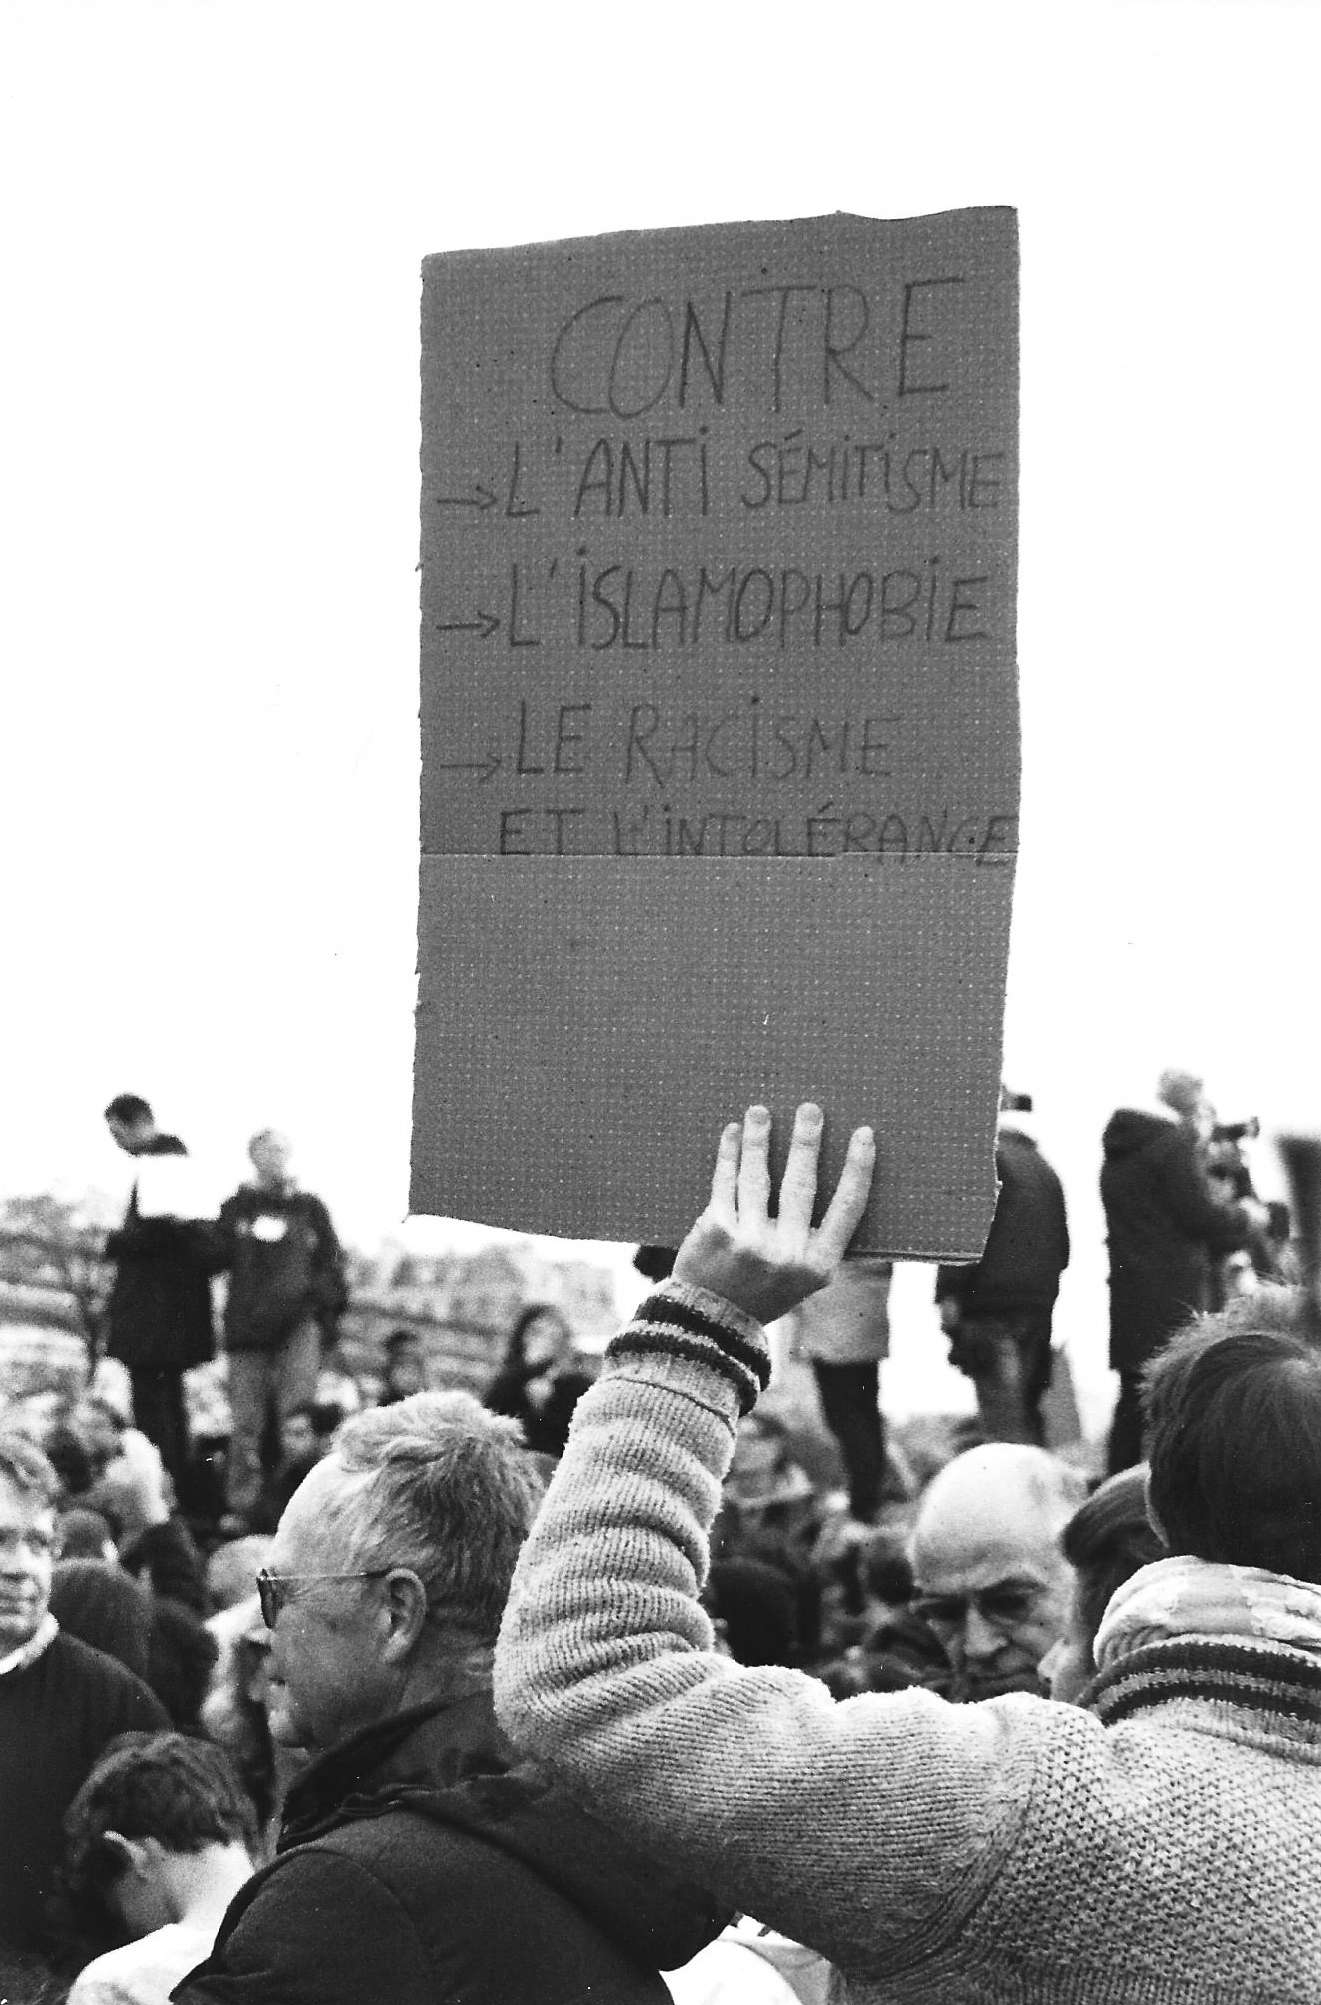 CONTRE
→ L'ANTI SÉMITISME
→ L'ISLAMOPHOBIE
→ LE RACISME
ET L'INTOLÉRANCE